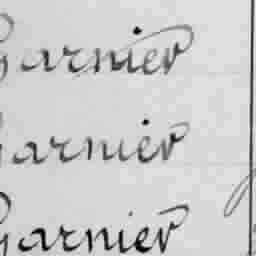 Garnier
Garnier
Garnier